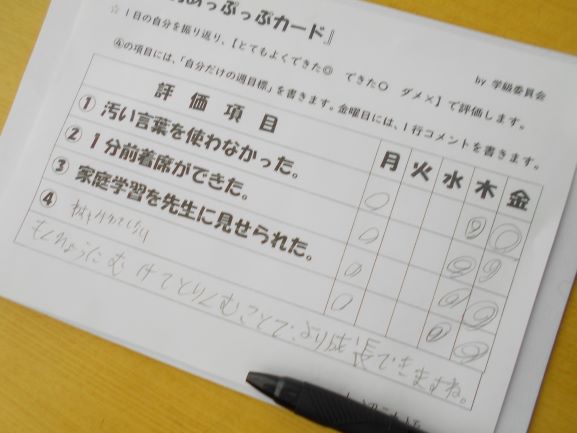 めっぷっぷカード』
☆1日の自分を振り返り、【とてもよくできた◎ できた○ ダメ×】で評価します。
by 学級委員会
④の項目には、「自分だけの週目標」を書きます。金曜日には、1行コメントを書きます。
評価項目 月 火 水 木 金
① 汚い言葉を使わなかった。
② 1分前着席ができた。
③ 家庭学習を先生に見せられた。
④
もくひょうにむけてとりくむことで、より成長できますね。